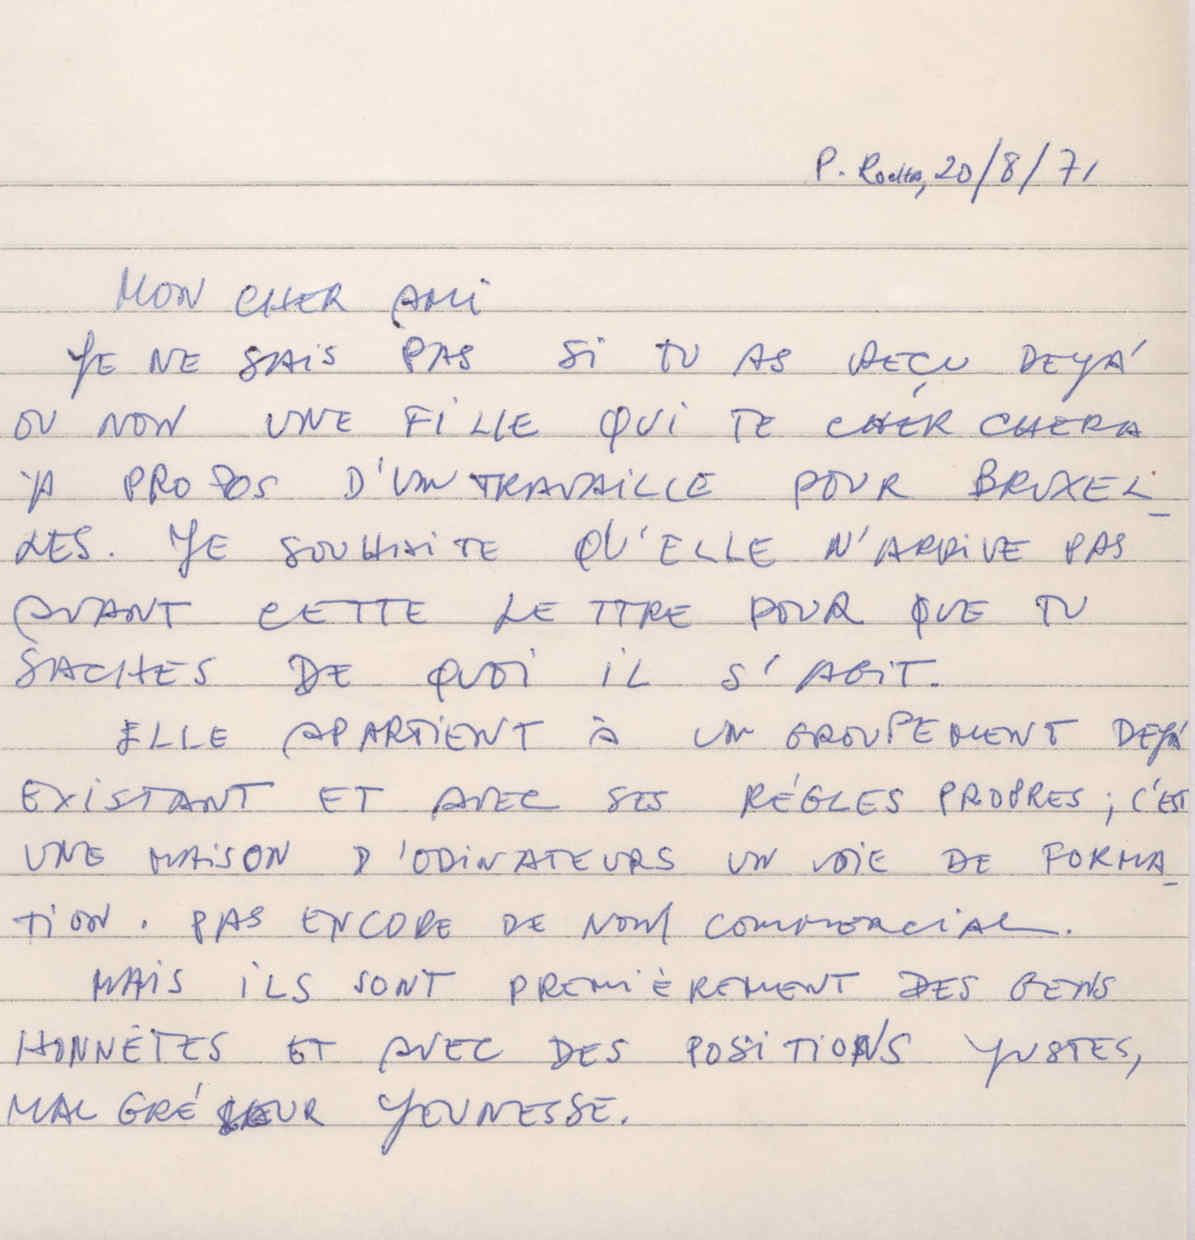 P. Rocha, 20/8/71
MON CHER AMI
YE NE SAIS PAS SI TU AS REÇU DEYÁ
OU NON UNE FILLE QUI TE CHERCHERA
A PROPOS D'UN TRAVAILLE POUR BRUXEL-
LES. YE SOUHAITE QU'ELLE N'ARRIVE PAS
AVANT CETTE LETTRE POUR QUE TU
SACHES DE QUOI IL S'AGIT.
ELLE APARTIENT À UN GROUPEMENT DEYÁ
EXISTANT ET AVEC SES RÉGLES PROPRES; C'EST
UNE MAISON D'ODINATEURS UN VOIE DE FORMA-
TION. PAS ENCORE DE NOM COMMERCIAL.
MAIS ILS SONT PREMIÈREMENT DES GENS
HONNÊTES ET AVEC DES POSITIONS YUSTES,
MALGRÉ LEUR YOUNESSE.